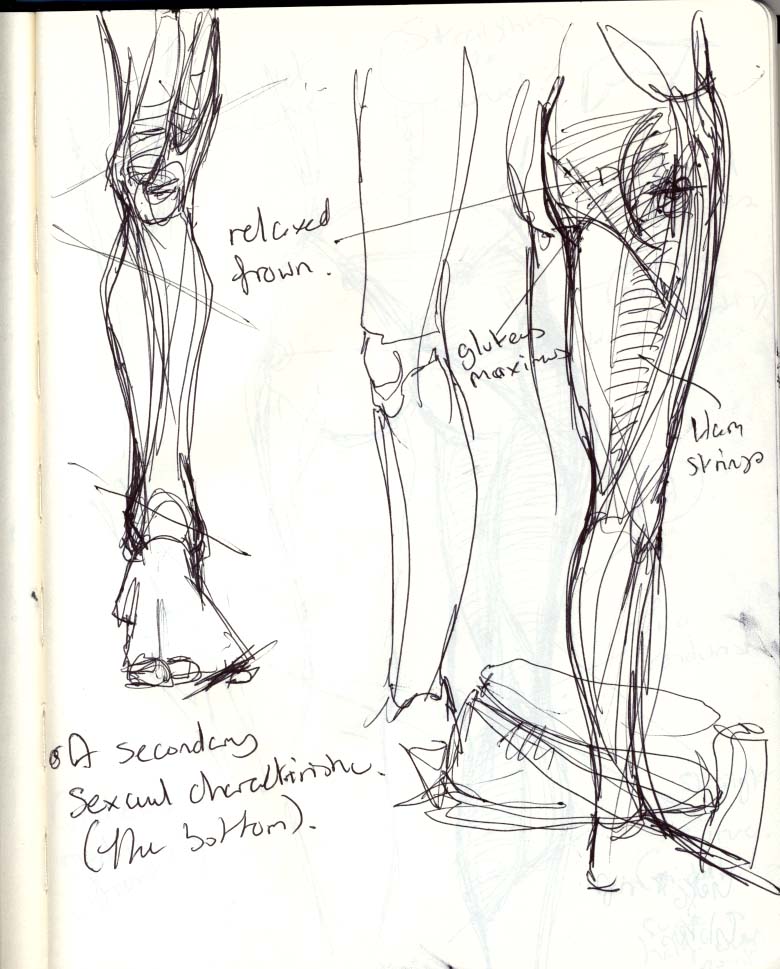 relaxed
frown.
gluteus
maximus
Ham
strings
A secondary
sexual charactiristic.
(the bottom).